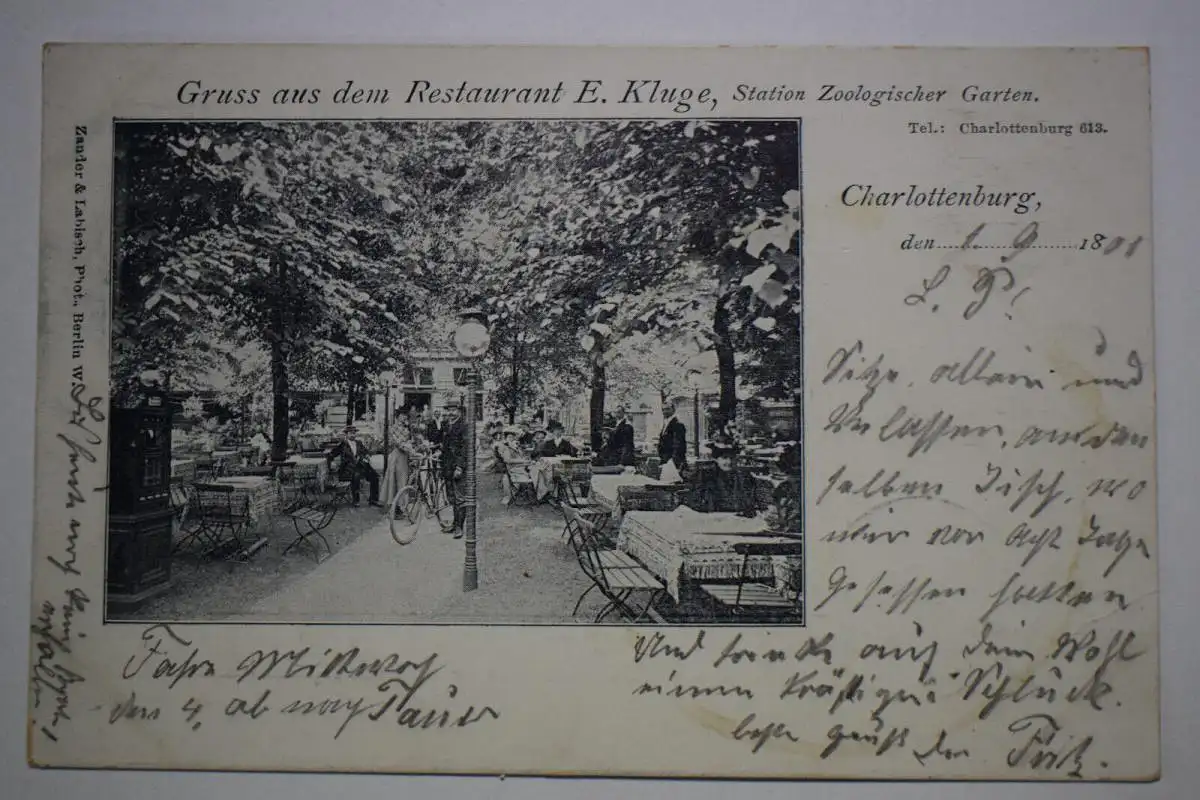 Gruss aus dem Restaurant E. Kluge, Station Zoologischer Garten.
Tel.: Charlottenburg 613.
Zander & Labisch, Phot., Berlin W.
Charlottenburg,
den 1. 9. 1801
L. P!
Sitze allein und
Verlassen, an den
selben Tisch, wo
wir vor acht Tage
gesessen hatten.
Und trinke auf dein Wohl
einen kräftigen Schluck.
beste grüßt der Fritz.
Fahre Mittwoch
den 4, ab nach
noch kein
erhalten!